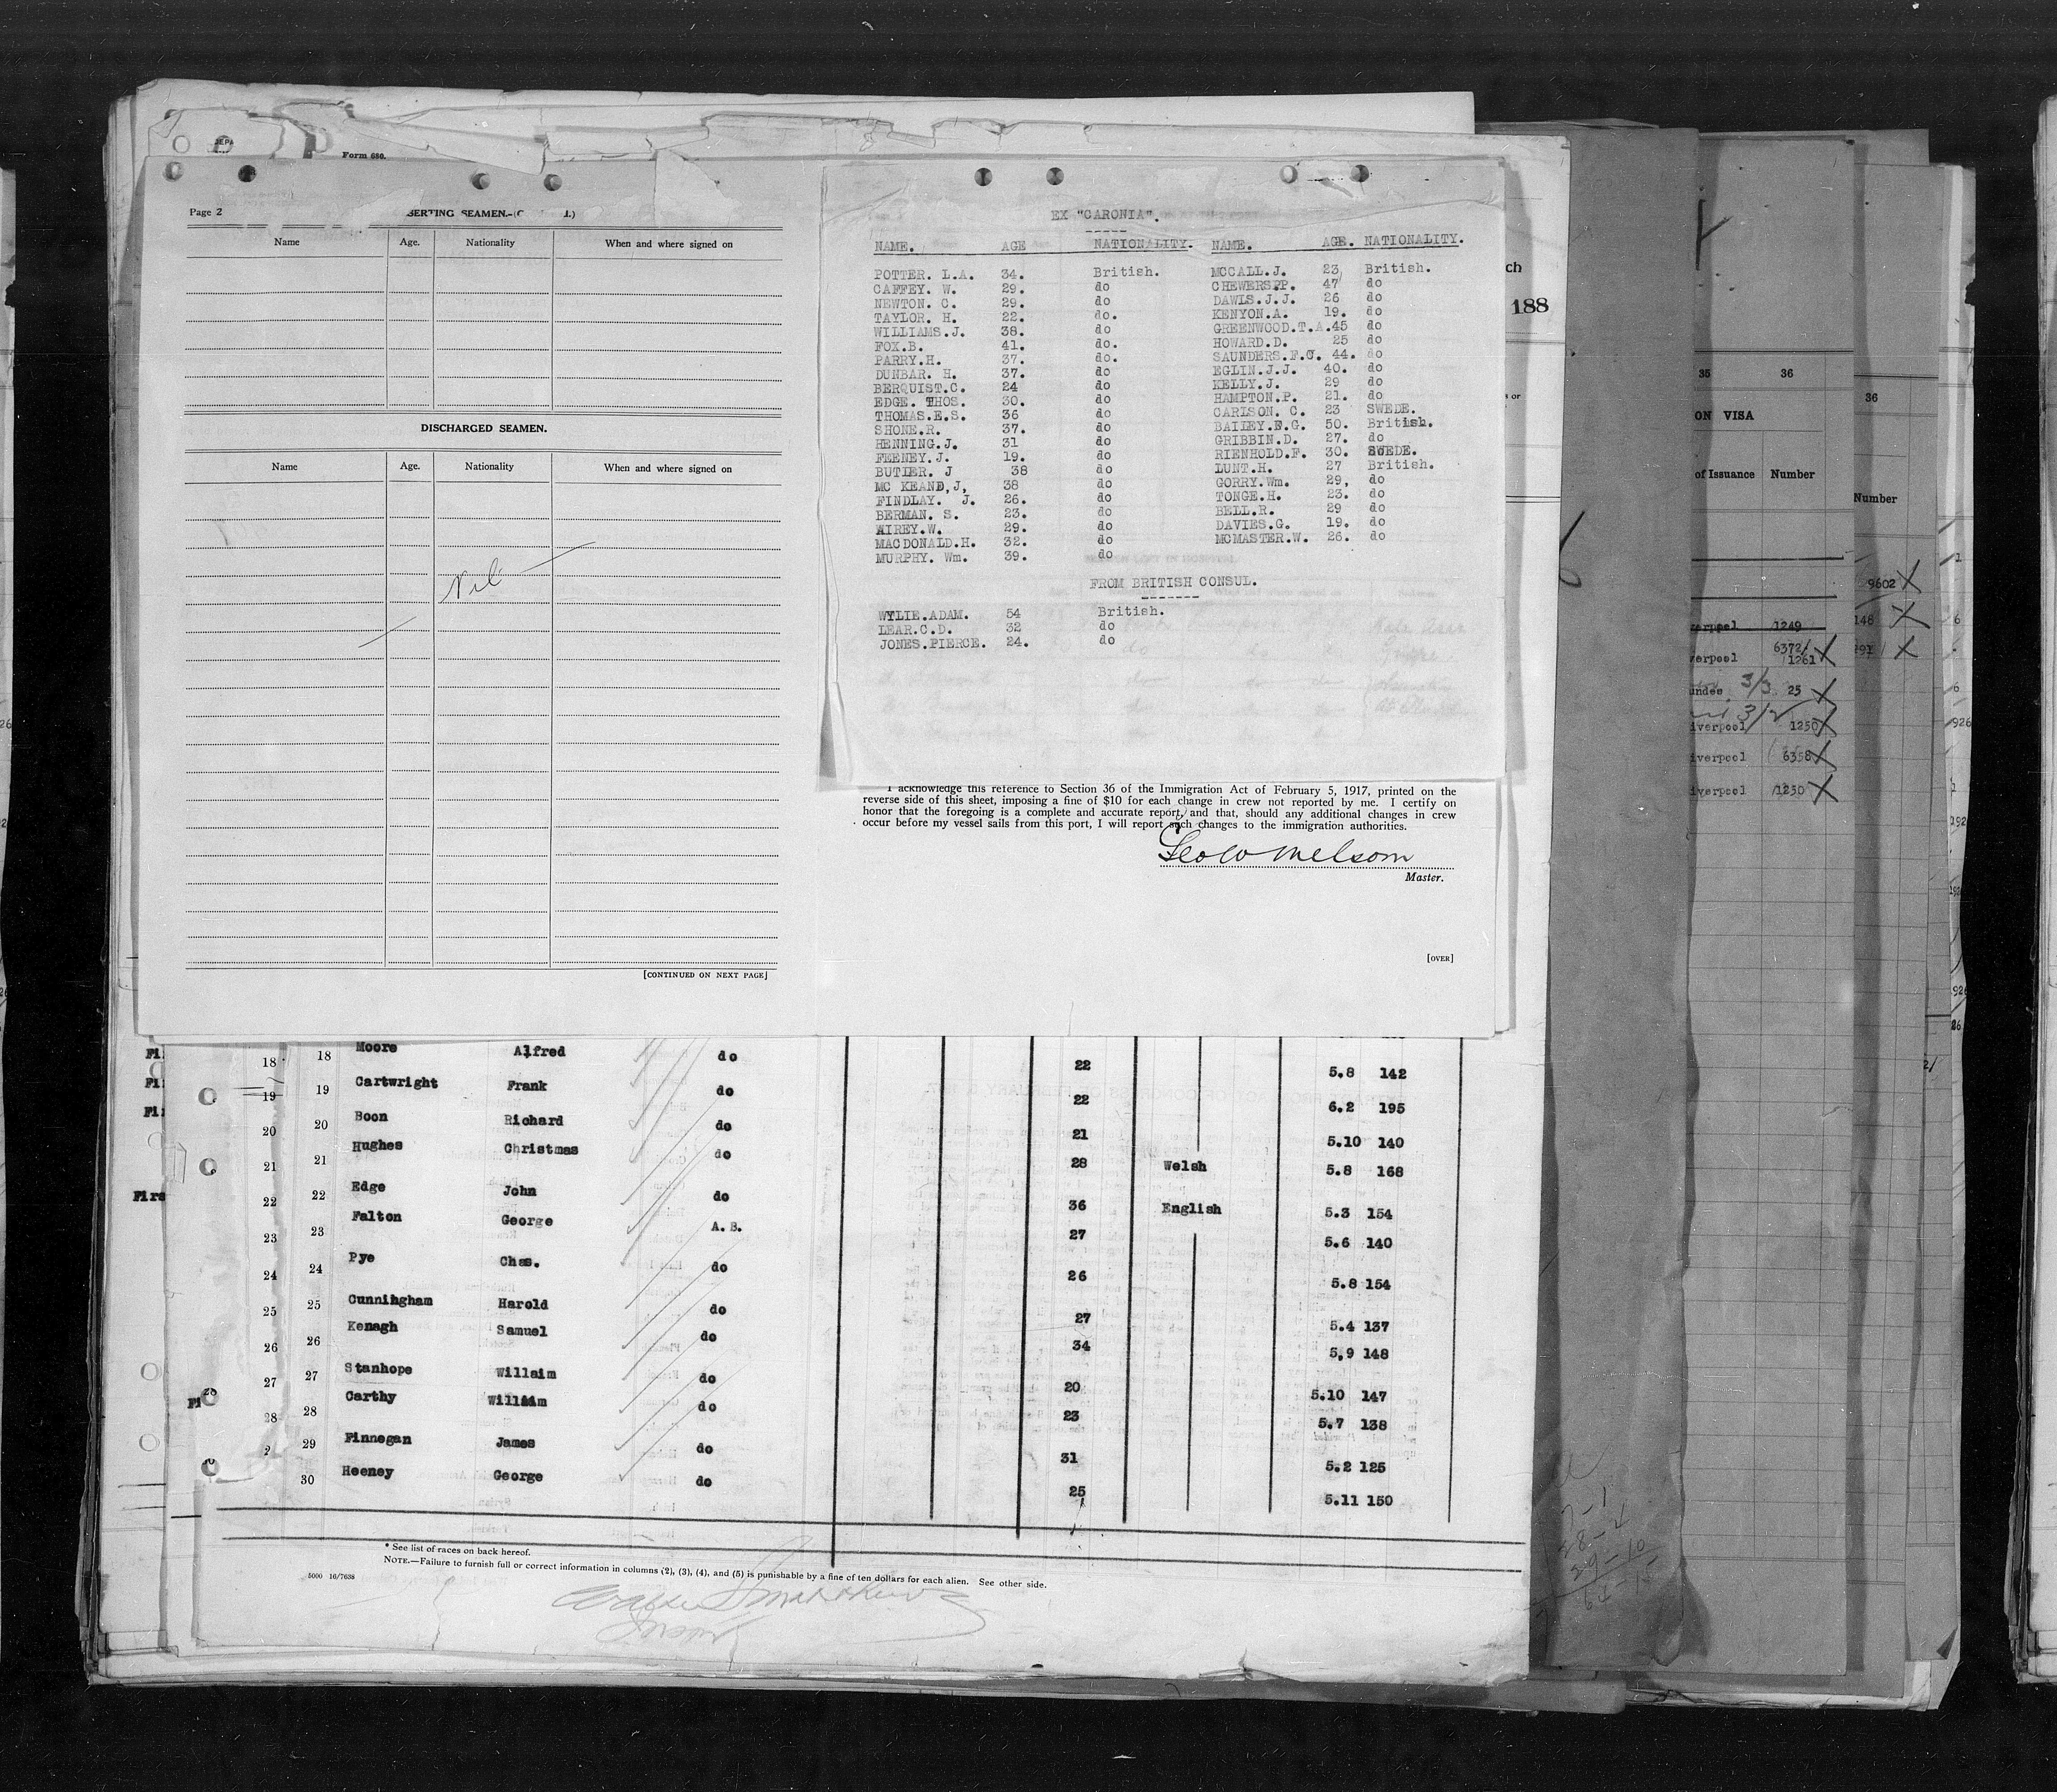 Form 680.
Page 2
SERTING SEAMEN.
Name Age. Nationality When and where signed on
DISCHARGED SEAMEN.
Name Age. Nationality When and where signed on
Nil
[CONTINUED ON NEXT PAGE]
EX "CARONIA".
NAME. AGE NATIONALITY. NAME. AGE. NATIONALITY.
POTTER. L.A. 34. British. MCCALL.J. 23, British.
CAFFEY. W. 29. do CHEWERS.P. 47 do
NEWTON. C. 29. do DAVIS.J.J. 26 do
TAYLOR. H. 22. do. KENYON.A. 19. do
WILLIAMS.J. 38. do GREENWOOD.T.A.45 do
FOX.B. 41. do. HOWARD.D. 25 do
PARRY.H. 37. do. SAUNDERS.F.C. 44. do
DUNBAR. H. 37. do EGLIN.J.J. 40. do
BERQUIST.C. 24 do KELLY.J. 29 do
EDGE. THOS. 30. do HAMPTON.P. 21. do
THOMAS.E.S. 36 do CARLSON. C. 23 SWEDE.
SHONE.R. 37. do BAILEY.E.G. 50. British.
HENNING.J. 31 do GRIBBIN.D. 27. do
FEENEY.J. 19. do RIENHOLD.F. 30. SWEDE.
BUTLER. J 38 do LUNT.H. 27 British.
MC KEAND,J, 38 do GORRY.Wm. 29, do
FINDLAY. J. 26. do TONGE.H. 23. do
BERMAN. S. 23. do BELL.R. 29 do
AIREY.W. 29. do DAVIES.G. 19. do
MACDONALD.H. 32. do MCMASTER.W. 26. do
MURPHY. Wm. 39. do
FROM BRITISH CONSUL.
WYLIE.ADAM. 54 British.
LEAR.C.D. 32 do
JONES.PIERCE. 24. do
I acknowledge this reference to Section 36 of the Immigration Act of February 5, 1917, printed on the
reverse side of this sheet, imposing a fine of $10 for each change in crew not reported by me. I certify on
honor that the foregoing is a complete and accurate report, and that, should any additional changes in crew
occur before my vessel sails from this port, I will report such changes to the immigration authorities.
Geo W Melsom
Master.
[OVER]
188
35 36
ON VISA
of Issuance Number
36
Number
9602
1249
148
6372
verpool 1261
undee 3/3 25
iverpool 1250
iverpool 6358
iverpool 1230
18 18 Moore Alfred do 22 5.8 142
19 19 Cartwright Frank do 22 6.2 195
20 20 Boon Richard do 21 5.10 140
21 21 Hughes Christmas do 28 Welsh 5.8 168
22 22 Edge John do 36 English 5.3 154
23 23 Falton George A.B. 27 5.6 140
24 24 Pye Chas. do 26 5.8 154
25 25 Cunningham Harold do 27 5.4 137
26 26 Kenagh Samuel do 34 5,9 148
27 27 Stanhope Willaim do 20 5.10 147
28 28 Carthy William do 23 5.7 138
29 Finnegan James do 31 5.2 125
30 Heeney George do 25 5.11 150
* See list of races on back hereof.
NOTE.—Failure to furnish full or correct information in columns (2), (3), (4), and (5) is punishable by a fine of ten dollars for each alien. See other side.
5000 16/7638